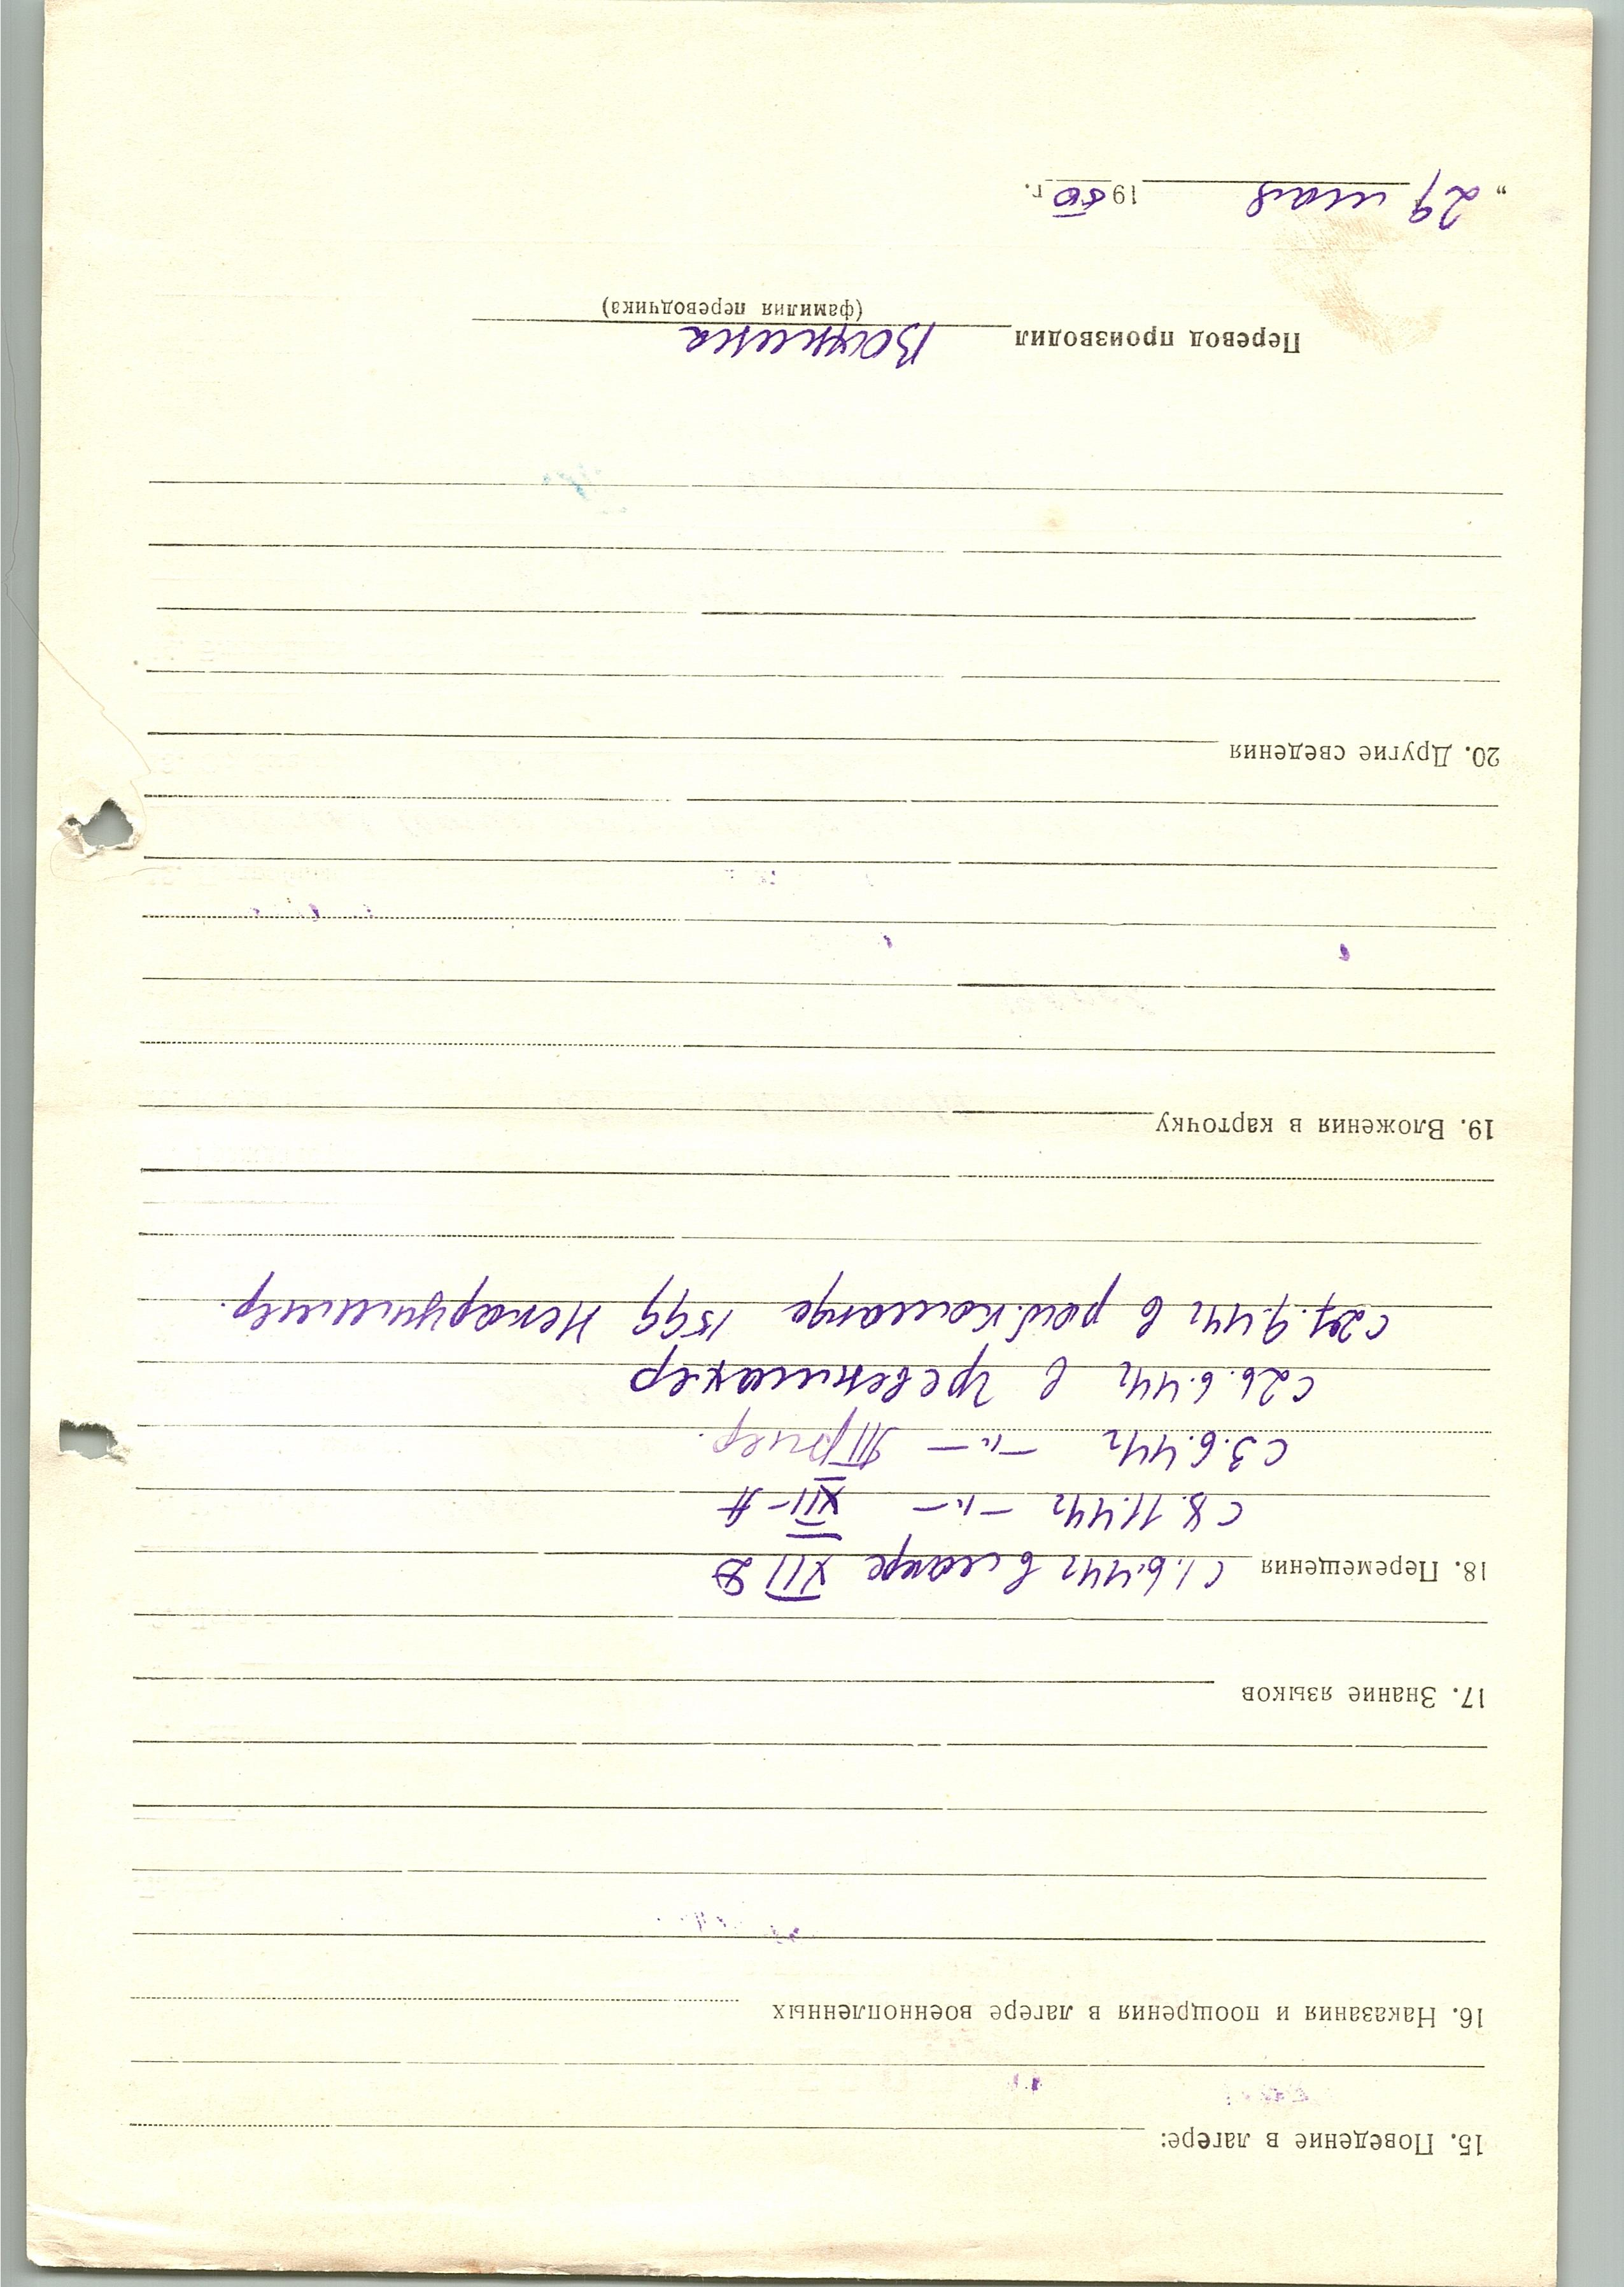 15. Поведение в лагере:
16. Наказания и поощрения в лагере военнопленных
17. Знание языков
18. Перемещения с 1.6.44г в лагере XII D
с 8.11.44г —„— XII-A
с 3.6.44г —„— Трир.
с 26.6.44г в Гревенмахер
с 27.9.44г в раб. команде 1599
19. Вложения в карточку
20. Другие сведения
Перевод производил
(фамилия переводчика)
„29 мая 1950 г.